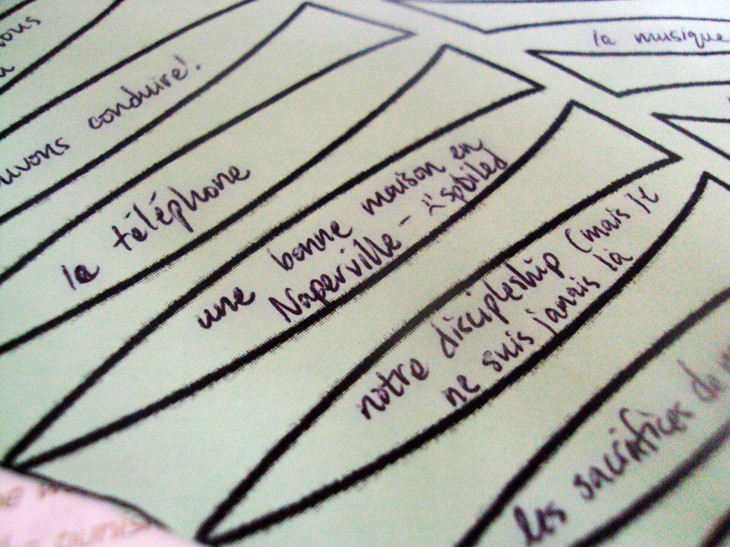 vous
conduire!
le téléphone
une bonne maison en
Naperville -
notre discipleship (mais je
ne suis jamais là
les sacrifices de
la musique